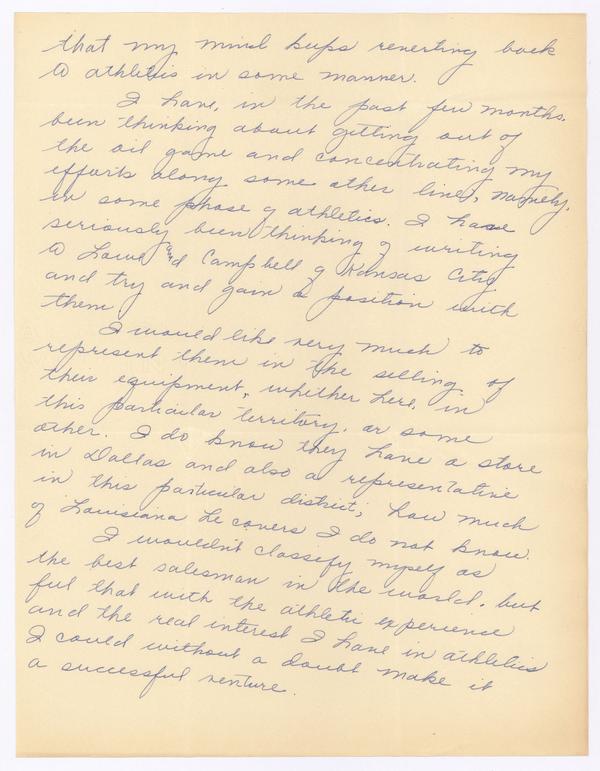 that my mind keeps reverting back
to athletics in some manner.
I have, in the past few months,
been thinking about getting out of
the oil game and concentrating my
efforts along some other lines, namely,
in some phase of athletics. I have
seriously been thinking of writing
to Lowe and Campbell of Kansas City
and try and gain a position with
them
I would like very much to
represent them in the selling of
their equipment, whether here, in
this particular territory, or some
other. I do know they have a store
in Dallas and also a representative
in this particular district; how much
of Louisiana he covers I do not know.
I wouldn't classify myself as
the best salesman in the world, but
ful that with the athletic experience
and the real interest I have in athletics
I could without a doubt make it
a successful venture.